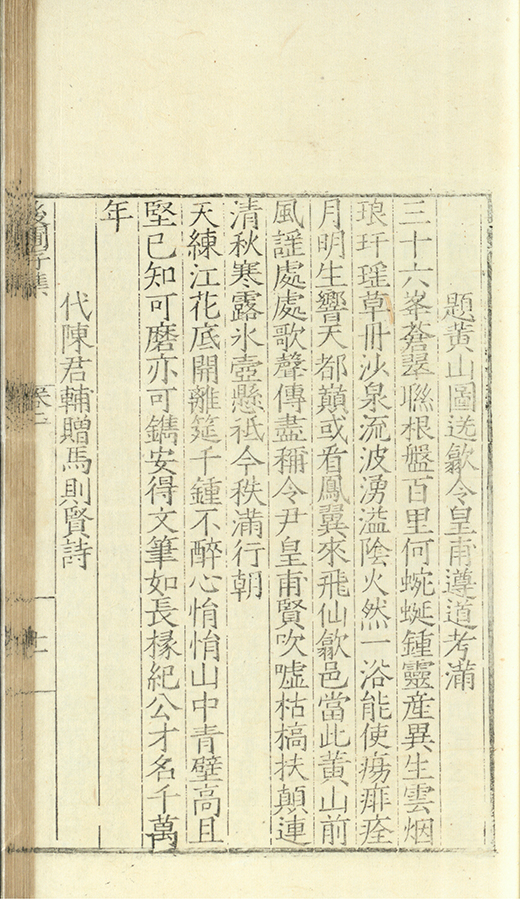 題黃山圖送歙令皇甫遵道考滿
三十六峯蒼翠聮根盤百里何蜿蜒鍾靈産異生雲烟
琅玕瑶草冊沙泉流波湧溢陰火然一浴能使㾏痱痊
月明生響天都巔或看鳳翼來飛仙歙邑當此黃山前
風謡處處歌聲傳盡稱令尹皇甫賢吹噓枯槁扶顛連
清秋寒露氷壺懸祗今秩滿行朝
天練江花底開離筵千鍾不醉心悁悁山中青壁高且
堅已知可磨亦可鐫安得文筆如長椽紀公才名千萬
年
代陳君輔贈馬則賢詩
後圃
集
卷